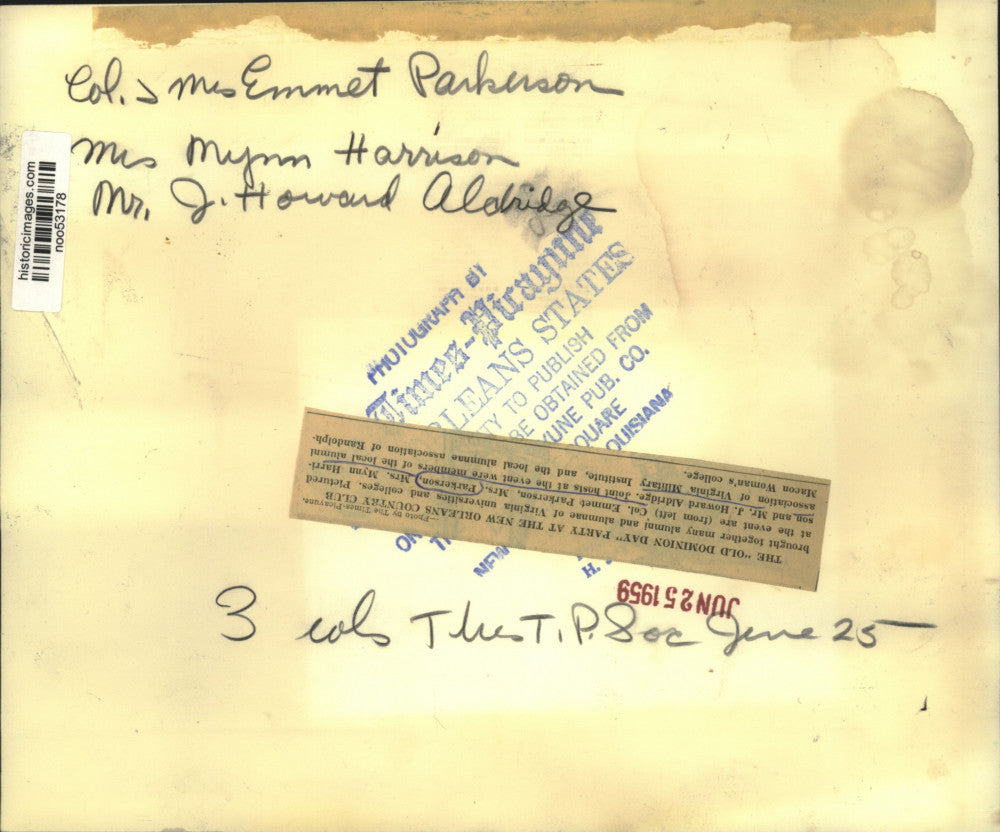 Col. & Mrs Emmet Parkerson
Mrs Mynn Harrison
Mr. J. Howard Aldridge
historicimages.com
noo53178
PHOTOGRAPH BY
Times-Picayune
ORLEANS STATES
TO PUBLISH
BE OBTAINED FROM
PUB. CO.
THE "OLD DOMINION DAY" PARTY AT THE NEW ORLEANS COUNTRY CLUB
—Photo by The Times-Picayune.
brought together many alumni and alumnae of Virginia universities and colleges. Pictured
at the event are (from left) Col. Emmet Parkerson, Mrs. Parkerson, Mrs. Mynn Harri-
son and Mr. J. Howard Aldridge. Joint hosts at the event were members of the local alumni
association of Virginia Military Institute, and the local alumnae association of Randolph-
Macon Woman's college.
NEW
H.
JUN 25 1959
3 cols Thurs T.P. Soc June 25